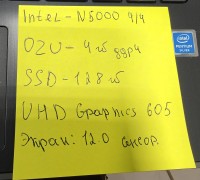 Intel - N5000 4/4
ОЗУ - 4 гб ддр4
SSD - 128 гб
UHD Graphics 605
Экран: 12.0 сенсор.
intel
PENTIUM